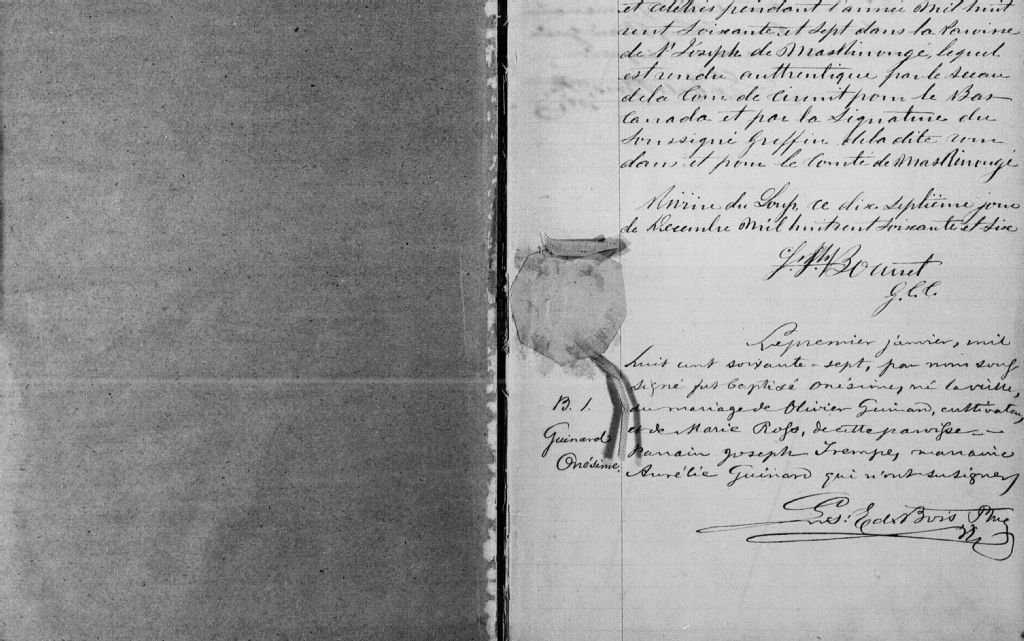 et célébrés pendant l'année Mil huit
cent soixante et sept dans la Paroisse
de St Joseph de Maskinongé, lequel
est rendu authentique par le sceau
de la Cour de Circuit pour le Bas
Canada et par la Signature du
Soussigné Greffier de la dite cour
dans et pour le Comté de Maskinongé
Rivière du Loup, ce dix-septième jour
de Décembre Mil huit cent soixante et six
G.C.C.
Le premier janvier, mil
huit cent soixante-sept, par nous sous
signé fut baptisé Onésime, né la veille,
B. 1.
du mariage de Olivier Guinard, cultivateur,
Guinard
et de Marie Ross, de cette paroisse
Onésime.
Parrain Joseph Trempe, marraine
Aurélie Guinard qui n'ont su signer